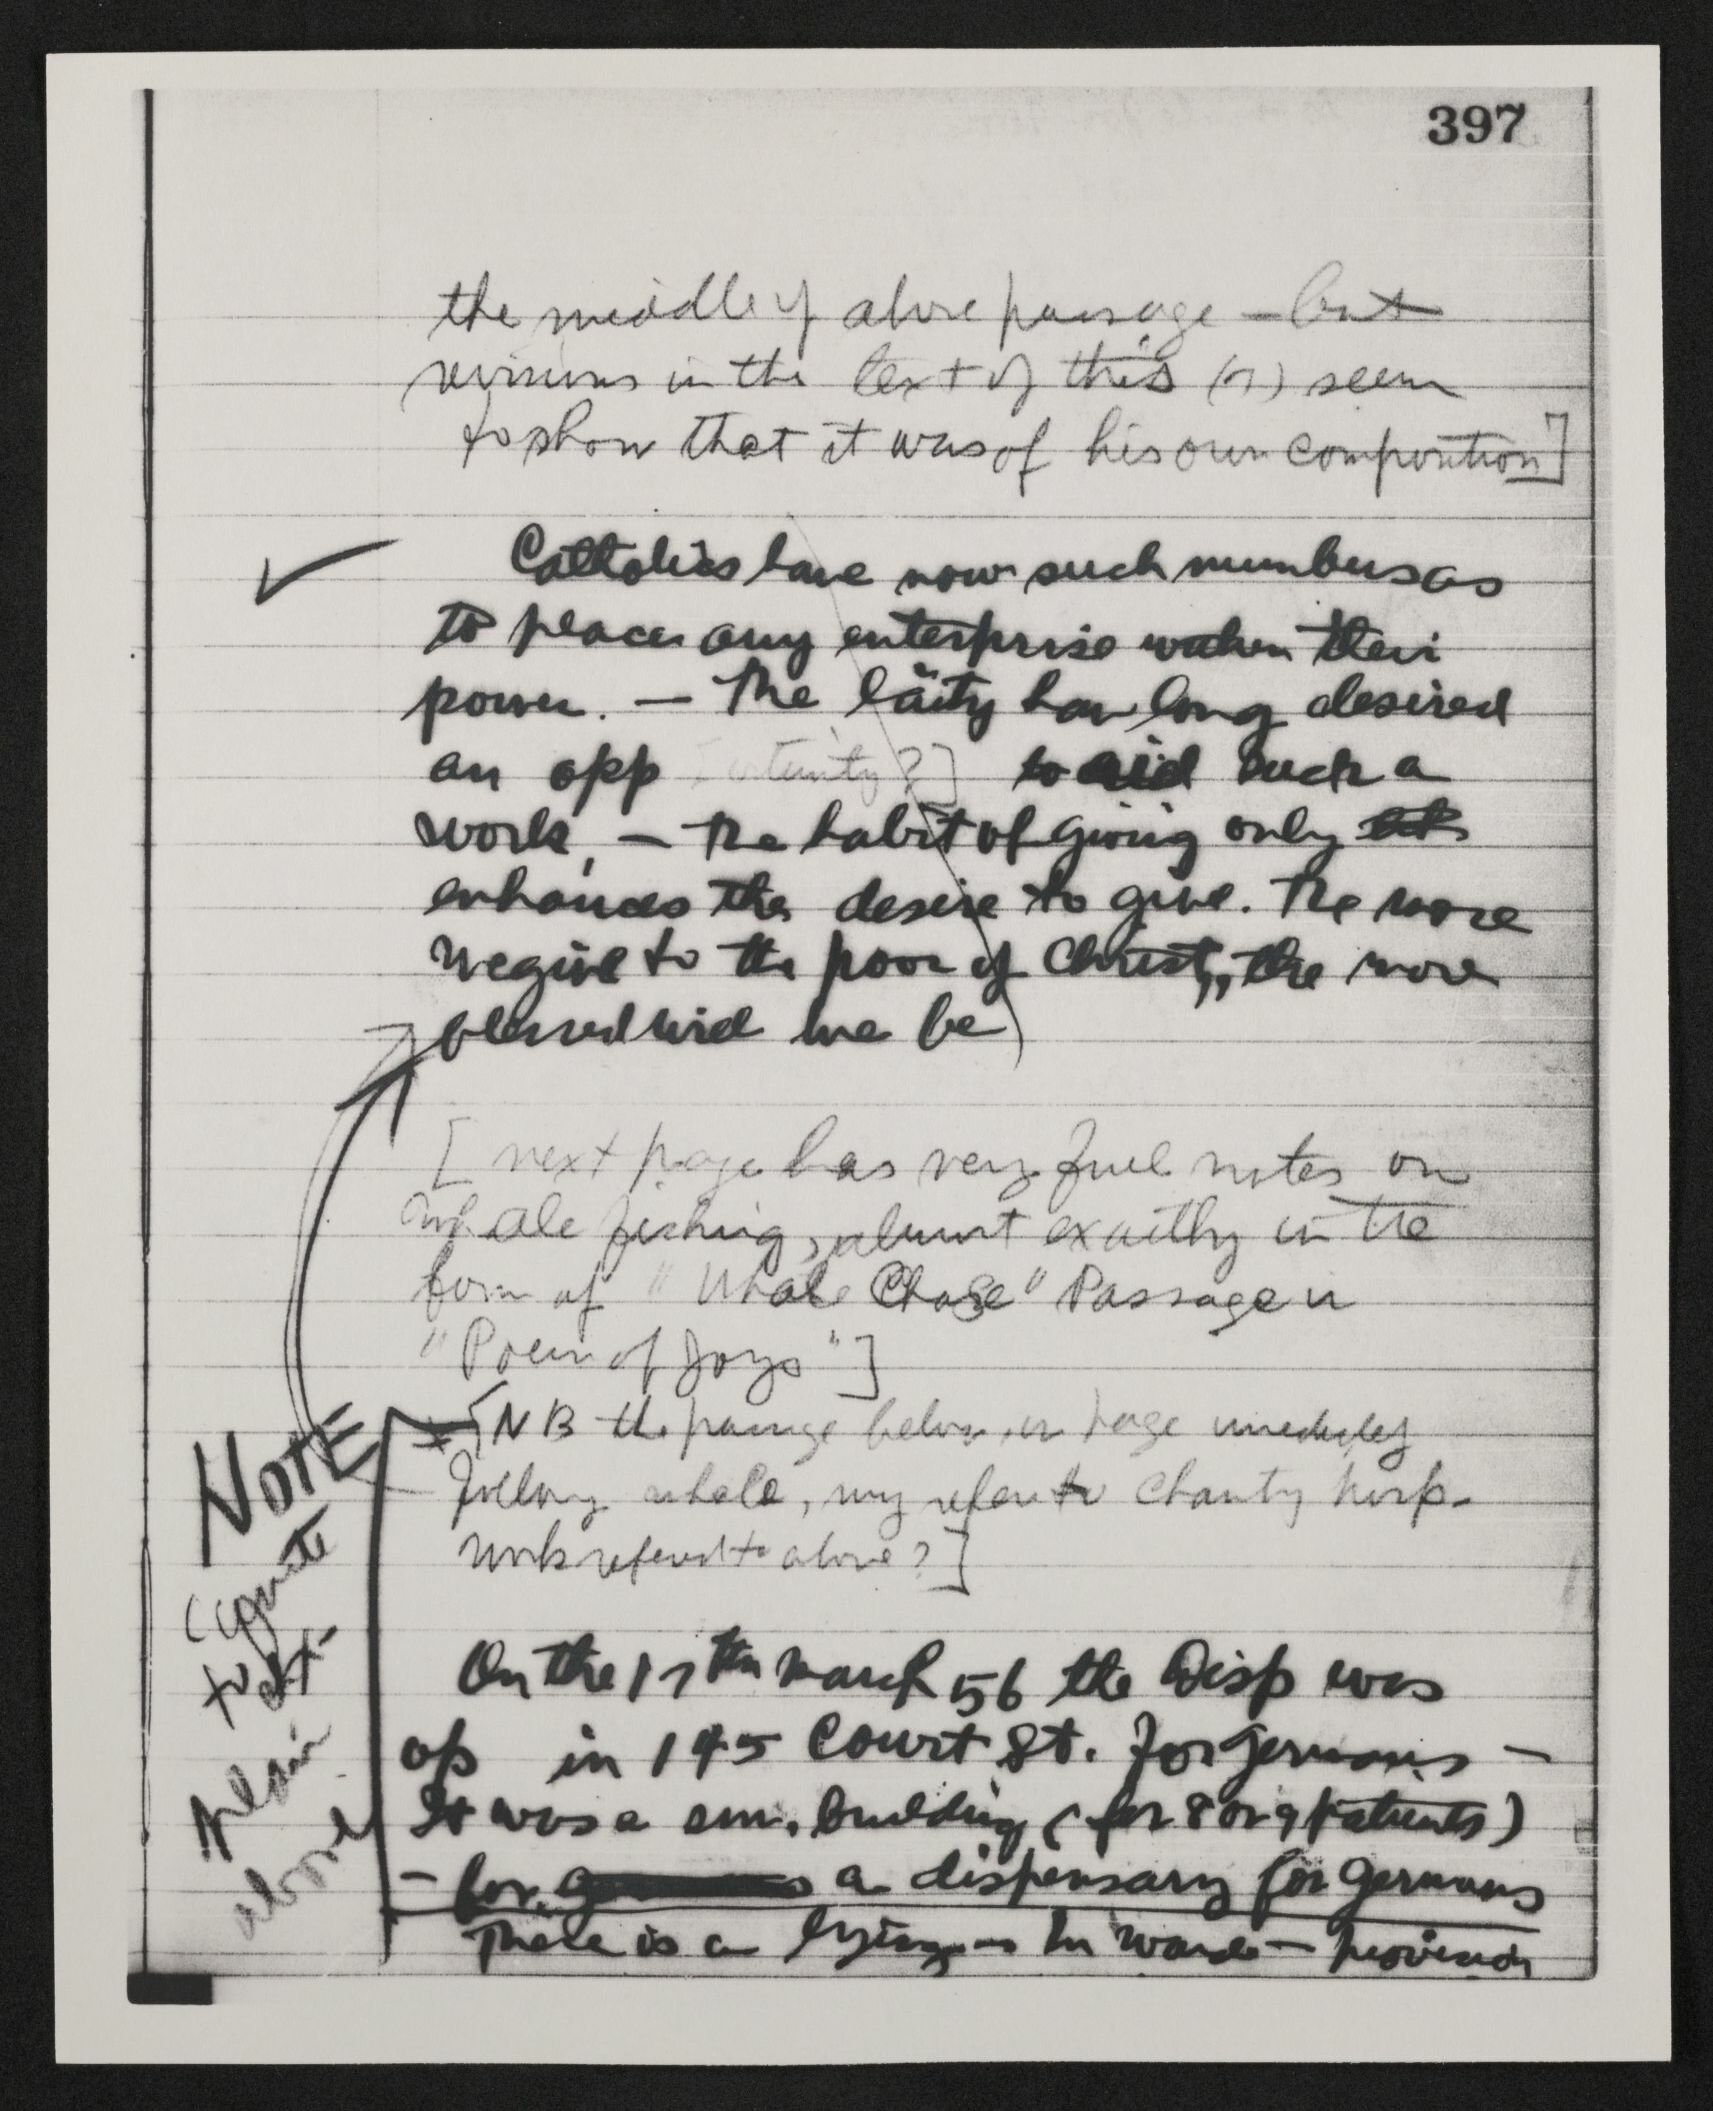 397
the middle of above passage — but
revisions in the text of this (n) seem
to show that it was of his own composition]
✓ Catholics have now such numbers as
to place any enterprise within their
power. — The laity have long desired
an opp [ortunity?] to aid such a
work, — The habit of giving only
enhances the desire to give. The more
we give to the poor of Christ,, the more
blessed will we be
[next page has very full notes on
whale fishing, almost exactly in the
form of "Whale Chase" Passage in
"Poem of Joys"]
+ [NB the passage below, on page immediately
following whale, may refer to charity hosp-
work referred to above?]
NOTE
(quite
to
ext-
plain
above
On the 17th March 56 the Disp was
op in 145 Court St. for Germans —
It was a sm. building (for 8 or 9 patients)
— for a dispensary for Germans
There is a lying-in ward — provision